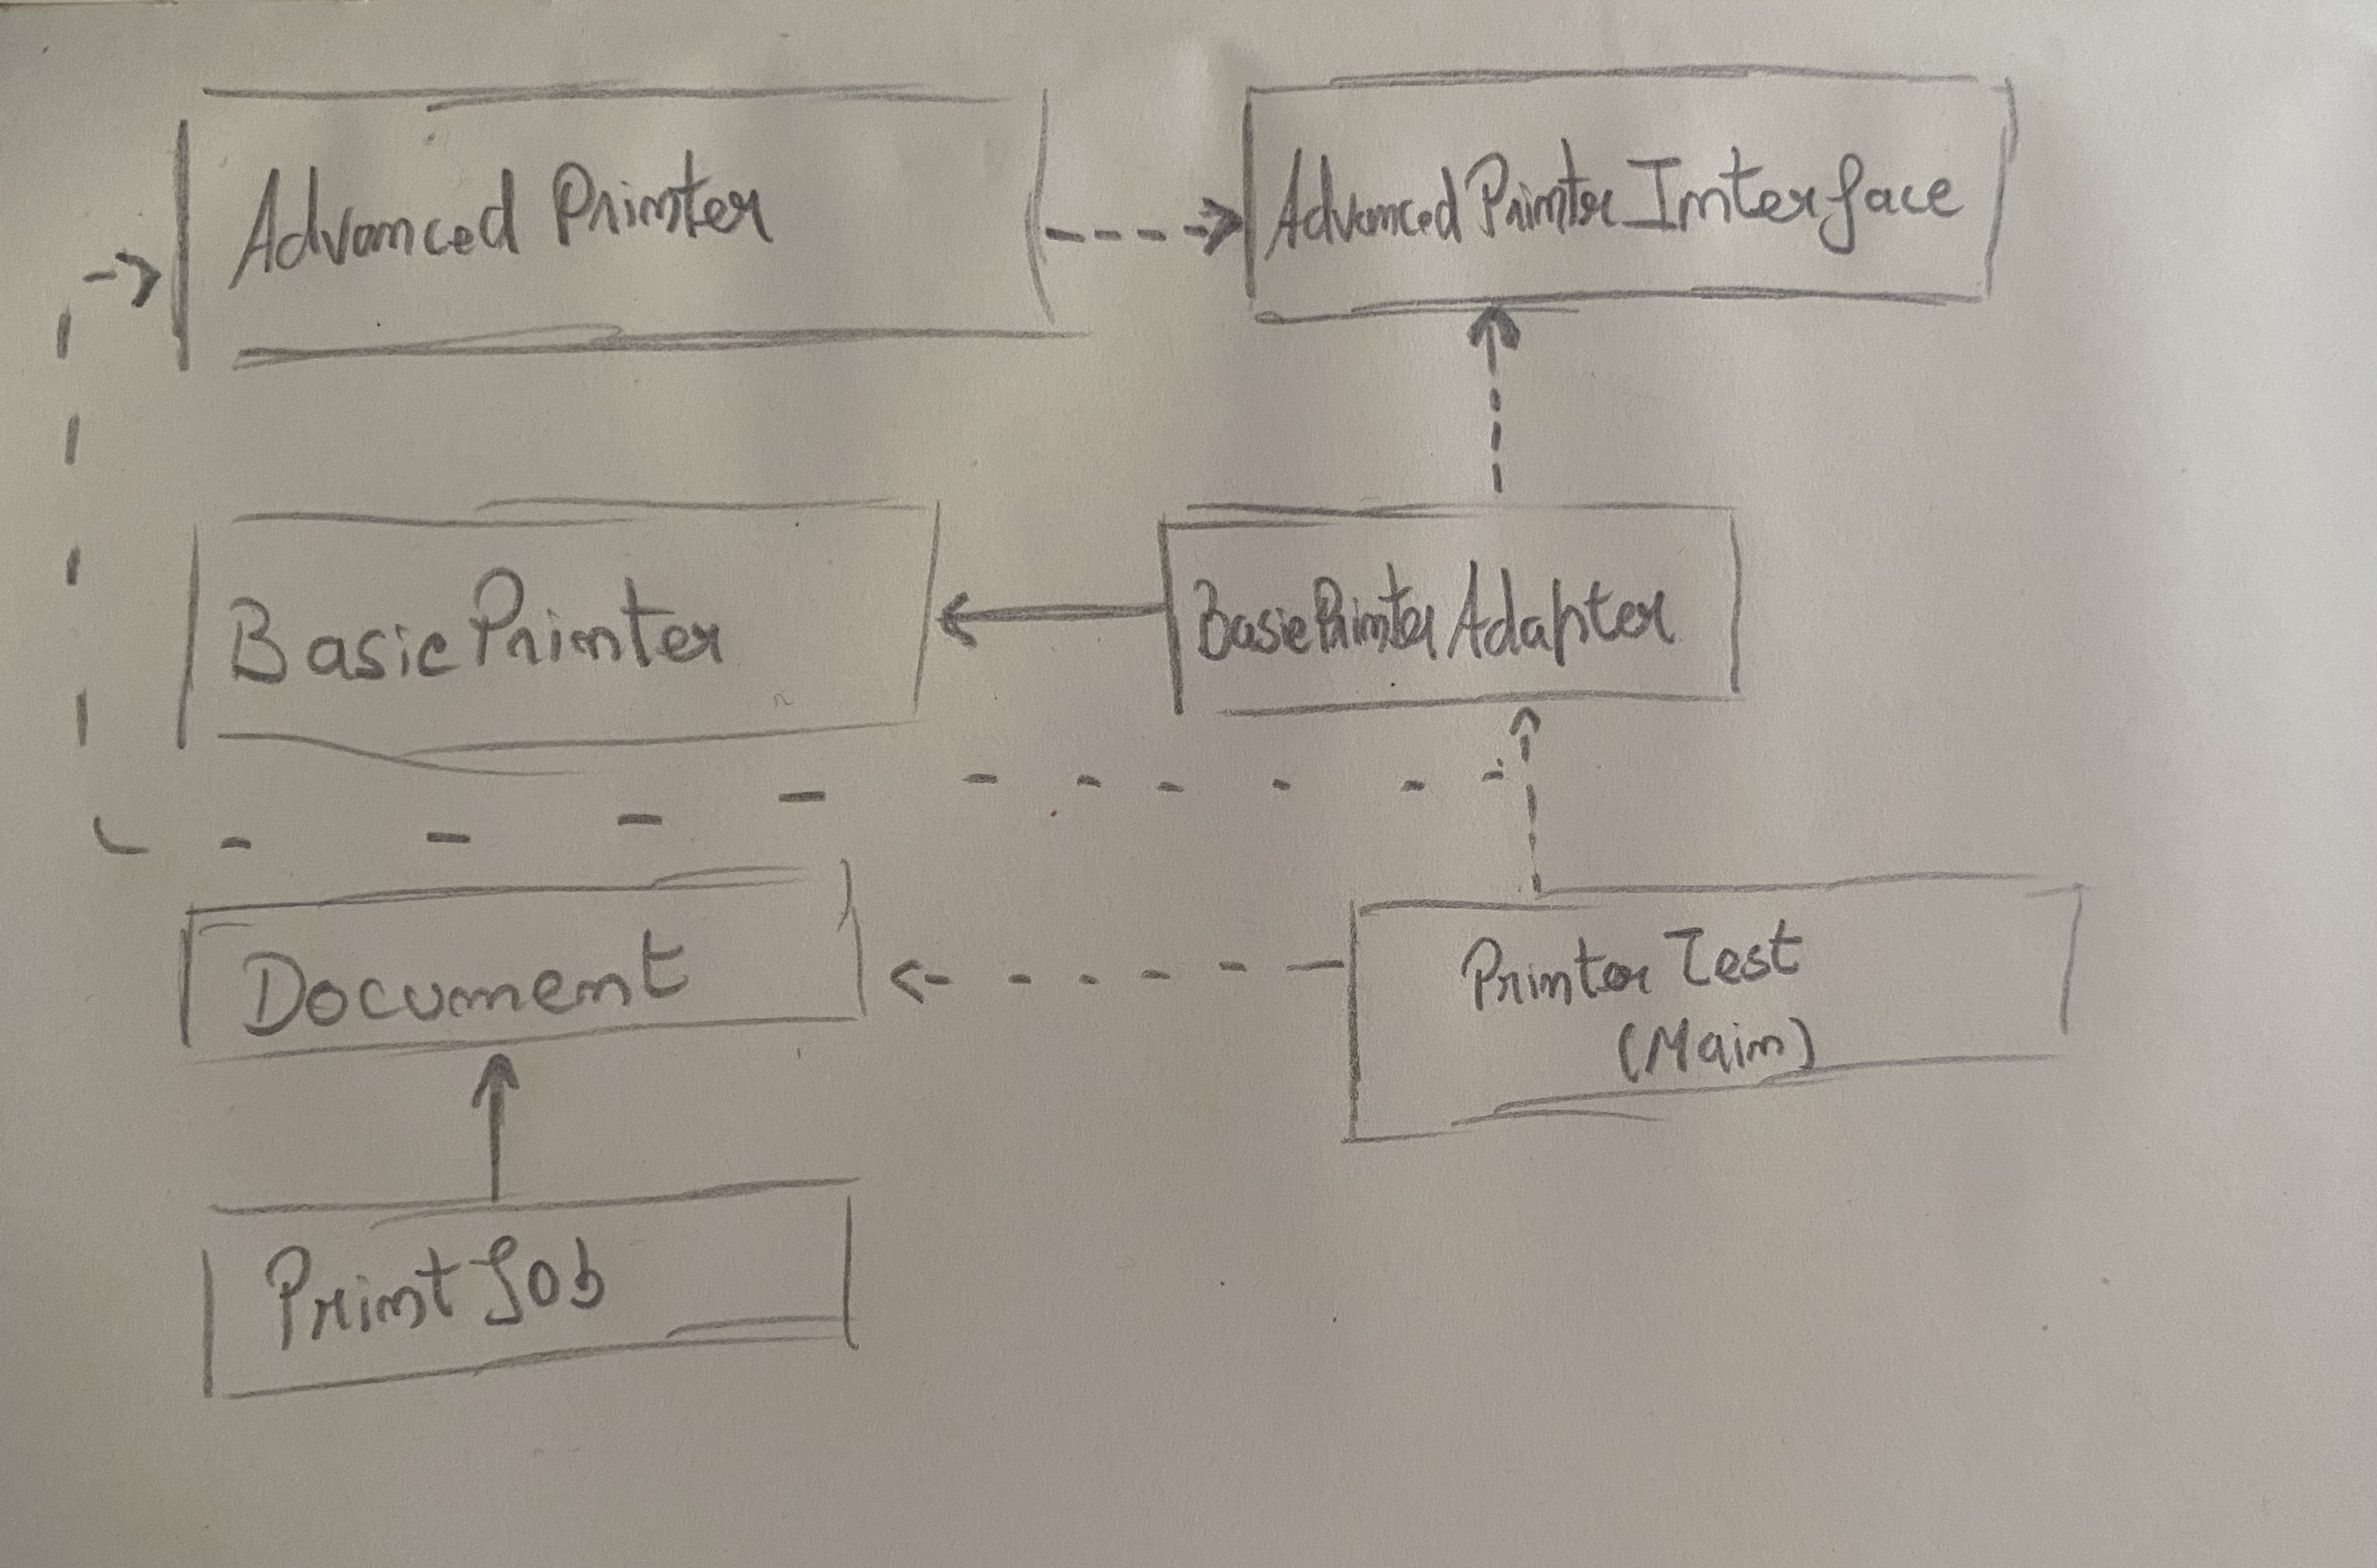 Advanced Printer
Advanced Printer Interface
BasicPrinter
BasicPrinter Adapter
Document
Printer Test
(Main)
Print Job